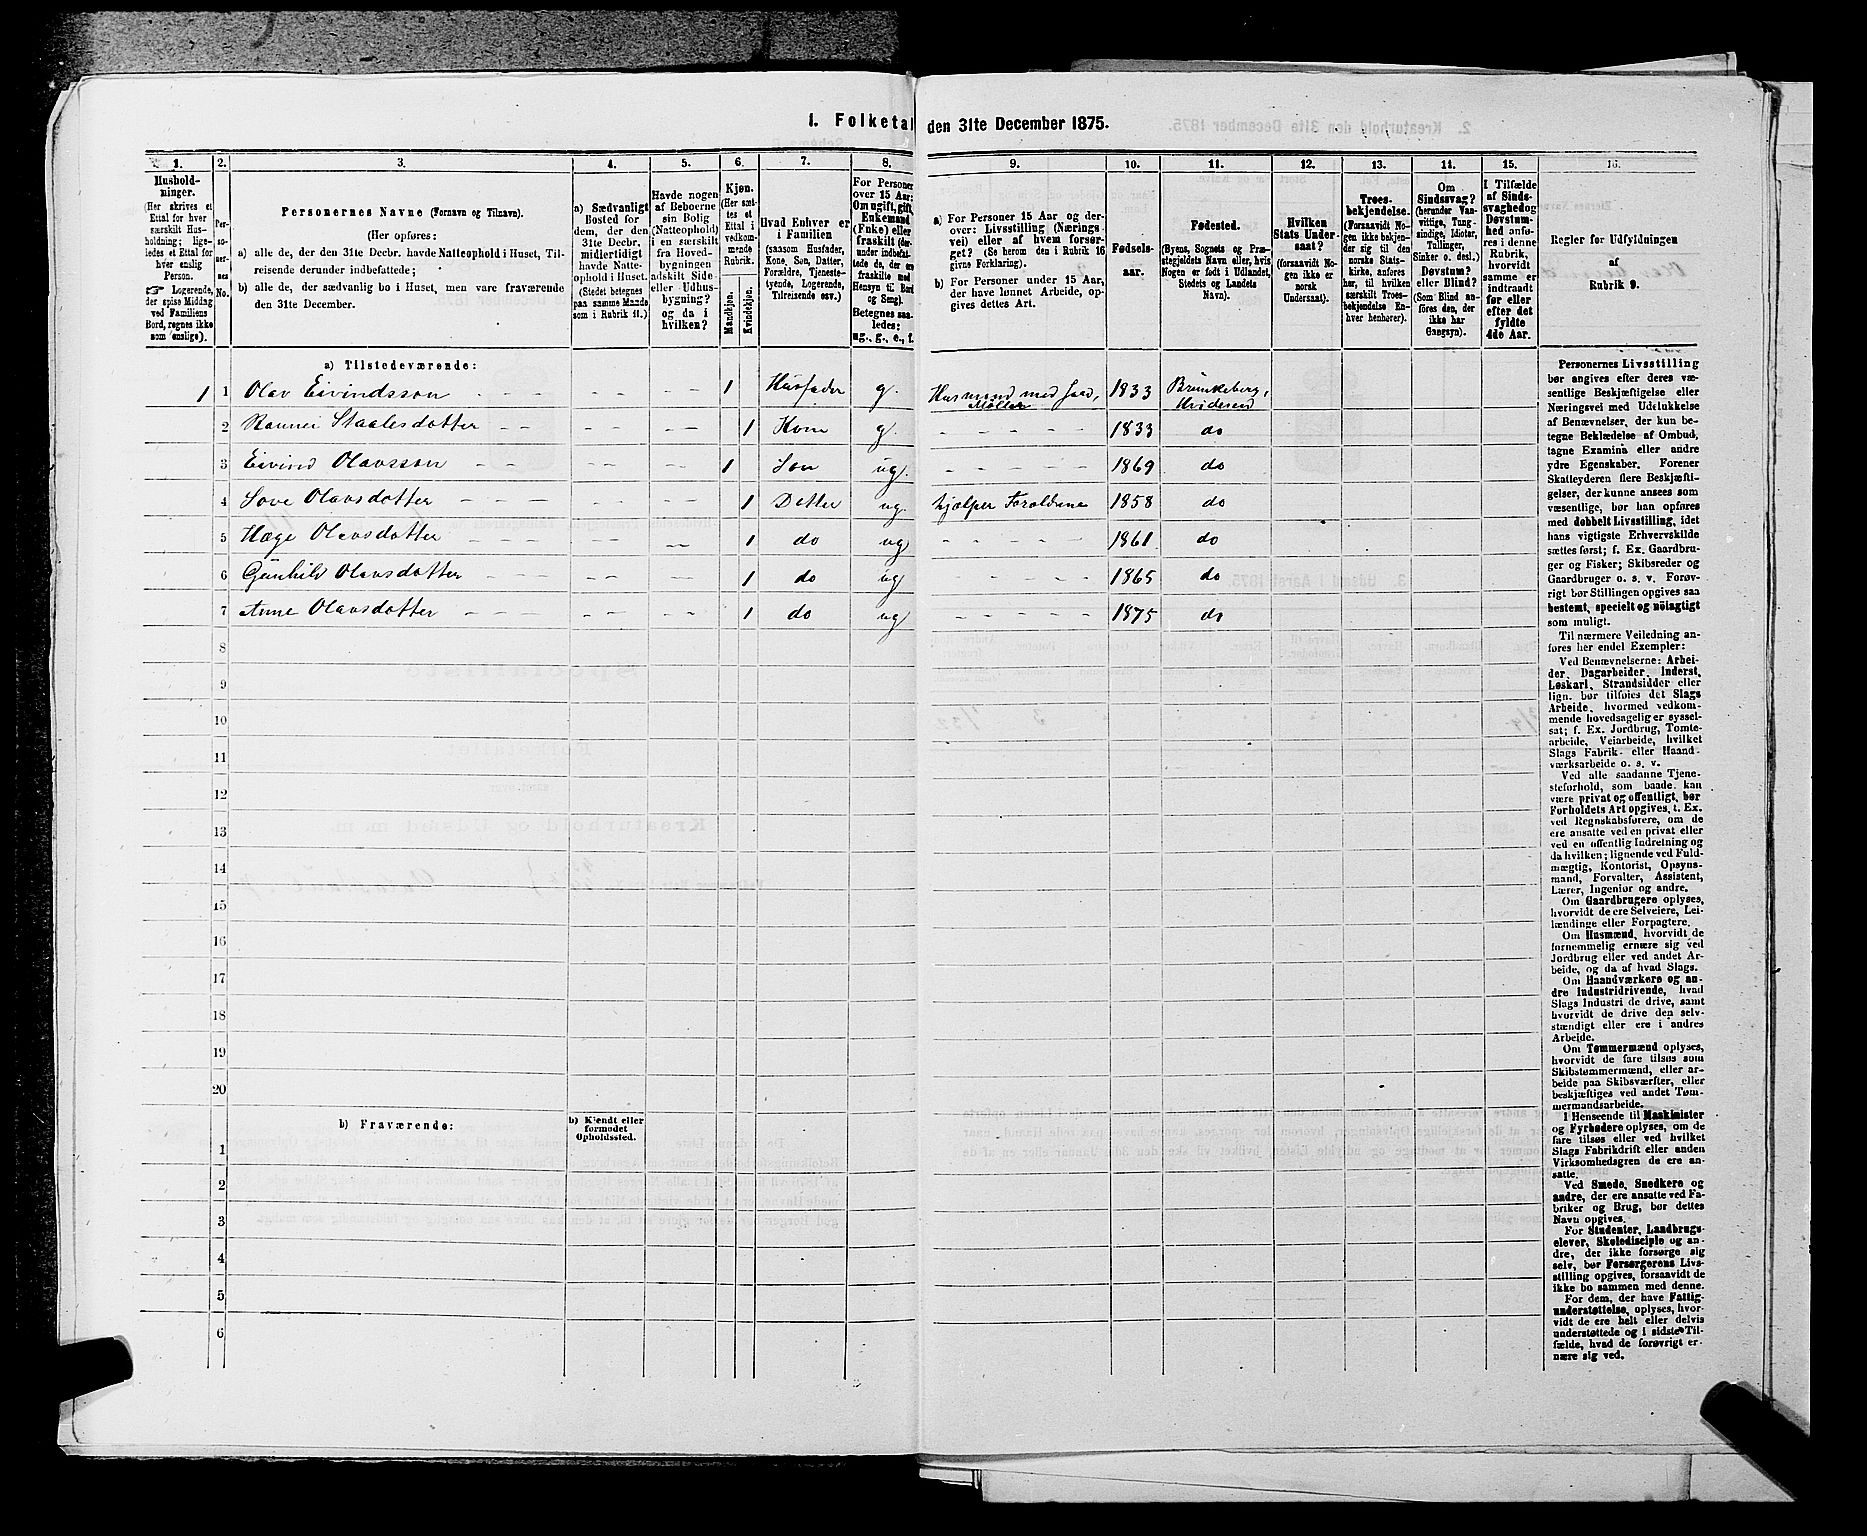 1. Folketal den 31te December 1875.
1. 2. 3. 4. 5. 6. 7. 8. 9. 10. 11. 12. 13. 14. 15. 16.
Hushold-
ninger.
(Her skrives et
Ettal for hver
særskilt Hus-
holdning; lige-
ledes et Ettal for
hver enslig
Person.
☞ Logerende,
der spise Middag
ved Familiens
Bord, regnes ikke
som enslige).
Per-
so-
ner-
nes
No.
Personernes Navne (Fornavn og Tilnavn).
(Her opføres:
a) alle de, der den 31te Decbr. havde Natteophold i Huset, Til-
reisende derunder indbefattede;
b) alle de, der sædvanlig bo i Huset, men vare fraværende
den 31te December.
a) Sædvanligt
Bosted for
dem, der den
31te Decbr.
midlertidigt
havde Natte-
ophold i Huset.
(Stedet betegnes
paa samme Maade
som i Rubrik 11.)
Havde nogen
af Beboerne
sin Bolig
(Natteophold)
i en særskilt
fra Hoved-
bygningen
adskilt Side
eller Udhus-
bygning?
og da i
hvilken?
Kjøn.
(Her sæt-
tes et
Ettal i
vedkom-
mende
Rubrik.
Mandkjøn.
Kvindekjøn.
Hvad Enhver er
i Familien
(saasom Husfader,
Kone, Søn, Datter,
Forældre, Tjeneste-
tyende, Logerende,
Tilreisende osv.)
For Personer
over 15 Aar:
Om ugift, gift,
Enkemand
(Enke) eller
fraskilt (der-
under indbefat-
tede de, der ere
fraskilte med
Hensyn til Bord
og Seng).
Betegnes saa-
ledes:
ug., g., e., f.
a) For Personer 15 Aar og der-
over: Livsstilling (Nærings-
vei) eller af hvem forsør-
get? (Se herom den i Rubrik 16
givne Forklaring).
b) For Personer under 15 Aar,
der have lønnet Arbeide, op-
gives dettes Art.
Fødsels-
aar.
Fødested.
(Byens, Sognets og Præ-
stegjeldets Navn eller, hvis
Nogen er født i Udlandet,
Stedets og Landets
Navn).
Hvilken
Stats Under-
saat?
(forsaavidt No-
gen ikke er
norsk
Undersaat).
Troes-
bekjendelse.
(Forsaavidt No-
gen ikke bekjen-
der sig til den
norske Stats-
kirke, anføres
her, til hvilken
særskilt Troes-
bekjendelse En-
hver henhører).
Om
Sindssvag?
(herunder Van-
vittige, Tung-
sindige, Idioter,
Tullinger,
Sinker o. desl.)
Døvstum?
eller Blind?
(Som Blind an-
føres den, der
ikke har
Gangsyn).
I Tilfælde
af Sinds-
svaghed og
Døvstum-
hed anfø-
res i denne
Rubrik,
hvorvidt
samme er
indtraadt
før eller
efter det
fyldte
4de Aar.
Regler for Udfyldningen
af
Rubrik 9.
a) Tilstedeværende:
1 1 Olav Eivindsson - - - - - - 1 Husfader g. Husmand med Jord, Møller 1833 Brunkeberg, Hvideseid
2 Rannei Staalesdotter - - - - - - 1 Kone g. - - - - - 1833 do
3 Eivind Olavsson - - - - - - 1 Søn ug. - - - - - 1869 do
4 Love Olavsdotter - - - - - - - 1 Detter ug. hjælper Foraldrene 1858 do
5 Hæge Olavsdotter - - - - - - - 1 do ug - - - - - 1861. do
6 Gunhild Olavsdotter - - - - - - - 1 do ug - - - - - 1865 do
7 Anne Olavsdotter - - - - - - - 1 do ug - - - - - 1875 do
8
9
10
11
12
13
14
15
16
17
18
19
20
b) Fraværende:
b) Kjendt eller
formodet
Opholdssted.
1
2
3
4
5
6
Personernes Livsstilling
bør angives efter deres væ-
sentlige Beskjæftigelse eller
Næringsvei med Udelukkelse
af Benævnelser, der kun be-
tegne Beklædelse af Ombud,
tagne Examina eller andre
ydre Egenskaber. Forener
Skatteyderen flere Beskjæfti-
gelser, der kunne ansees som
væsentlige, bør han opføres
med dobbelt Livsstilling, idet
hans vigtigste Erhvervskilde
sættes først; f. Ex. Gaardbru-
ger og Fisker; Skibsreder og
Gaardbruger o. s. v. Forøv-
rigt bør Stillingen opgives saa
bestemt, specielt og nøiagtigt
som muligt.
Til nærmere Veiledning an-
føres her endel Exempler:
Ved Benævnelserne: Arbei-
der, Dagarbeider, Inderst,
Løskarl, Strandsidder eller
lign. bør tilføies det Slags
Arbeide, hvormed vedkom-
mende hovedsagelig er syssel-
sat; f. Ex. Jordbrug, Tomte-
arbeide, Veiarbeide, hvilket
Slags Fabrik- eller Haand-
værksarbeide o. s. v.
Ved alle saadanne Tjene-
steforhold, som baade kan
være privat og offentligt, bør
Forholdets Art opgives, t. Ex.
ved Regnskabsførere, om de
ere ansatte ved en privat eller
ved en offentlig Indretning og
da hvilken; lignende ved Fuld-
mægtig, Kontorist, Opsyns-
mand, Forvalter, Assistent,
Lærer, Ingeniør og andre.
Om Gaardbrugere oplyses,
hvorvidt de ere Selveiere, Lei-
lændinge eller Forpagtere.
Om Husmænd, hvorvidt de
fornemmelig ernære sig ved
Jordbrug eller ved andet Ar-
beide, og da af hvad Slags.
Om Haandværkere og an-
dre Industridrivende, hvad
Slags Industri de drive, samt
hvorvidt de drive den selv-
stændigt eller ere i andres
Arbeide.
Om Tømmermænd oplyses,
hvorvidt de fare tilsøs som
Skibstømmermænd, eller ar-
beide paa Skibsværfter, eller
beskjæftiges ved andet Tøm-
mermandsarbeide.
I Henseende til Maskinister
og Fyrbødere oplyses, om de
fare tilsøs eller ved hvilket
Slags Fabrikdrift eller anden
Virksomhedsgren de ere an-
satte.
Ved Smede, Snedkere og
andre, der ere ansatte ved Fa-
briker og Brug, bør dettes
Navn opgives.
For Studenter, Landbrugs-
elever, Skoledisciple og an-
dre, der ikke forsørge sig
selv, bør Forsørgerens Livs-
stilling opgives, forsaavidt de
ikke bo sammen med denne.
For dem, der have Fattig-
understøttelse, oplyses, hvor-
vidt de ere helt eller delvis
understøttede og i sidste Til-
fælde, hvad de forøvrigt er-
nære sig ved.